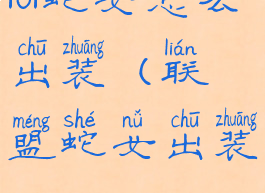 lol蛇女怎么
chū zhuāng lián
出装（联
méng shé nǚ chū zhuāng
盟蛇女出装